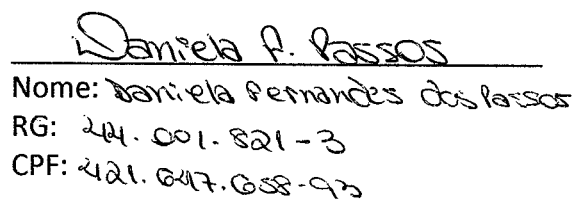 Daniela F. Passos
Nome: Daniela Fernandes dos Passos
RG: 44.001.821-3
CPF: 421.647.658-93